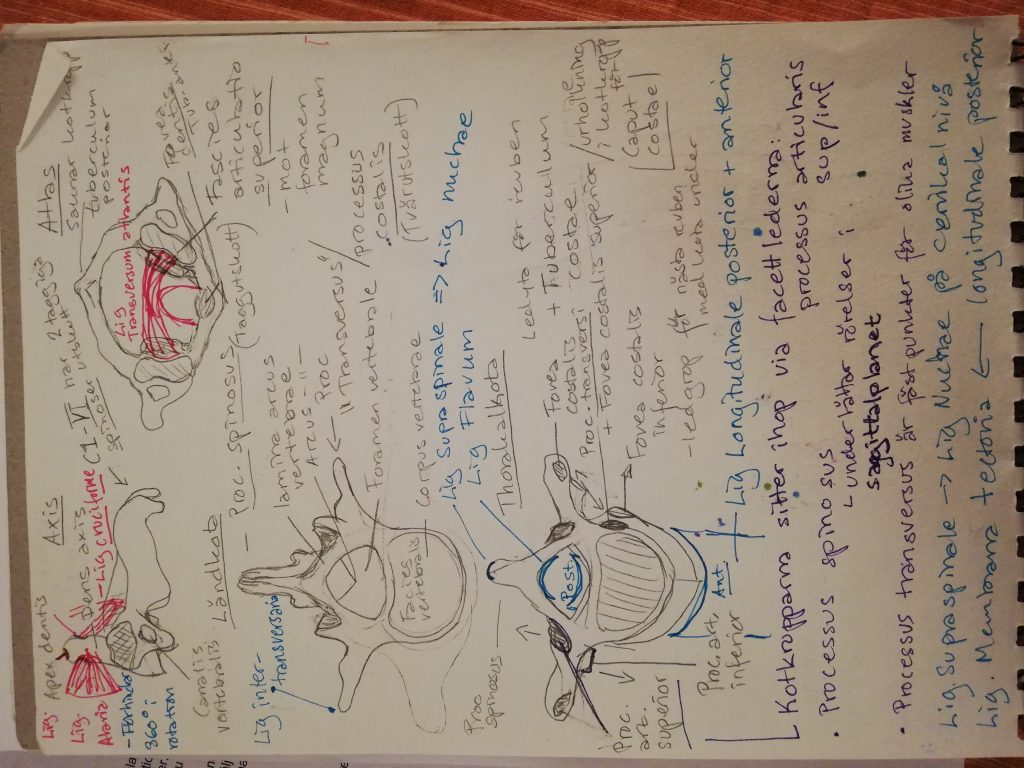 Lig. Apex dentis
Axis
Lig.
Alaria
Dens axis
- Lig cruciforme
- Förhindar
360° i
rotation
(C1-VI har 2 taggiga
spinosser utskott
Atlas
saknar kotkropp
tuberculum
posterior
Lig
Transversum atlantis
Fovea
dentis
Fascies
articulatio
superior
- mot
foramen
magnum
Canalis
vertebralis
Ländkota
- Proc. Spinosus (taggutskott)
lamina arcus
vertebrae
Arcus - 11 -
Proc
"Transversus"/processus
costalis
(Tvärutskott)
Foramen vertebrale
Corpus vertebrae
Facies
vertebralis
Lig inter-
transversaria
Lig Supraspinale => Lig nuchae
Lig Flavum
Thorakalkota
Proc
Spinosus
Ledyta för revben
Fovea + Tuberculum
costalis costae
Proc. transversi
+ Fovea costalis superior/urholkning
i kotkropp
för
Caput
costae
Fovea costalis
inferior
- ledgrop för nästa revben
med kota under
Post
Ant
Proc.
art.
superior
Proc. art.
inferior
Lig Longitudinale posterior + anterior
Kotkropparna sitter ihop via facettlederna:
processus articularis
sup/inf
• Processus spinosus
underlättar rörelser i
sagittalplanet
• Processus transversus är fästpunkter för olika muskler
Lig. Supraspinale → Lig Nuchae på cervikal nivå
Lig. Membrana tectoria ← longitudinale posterior